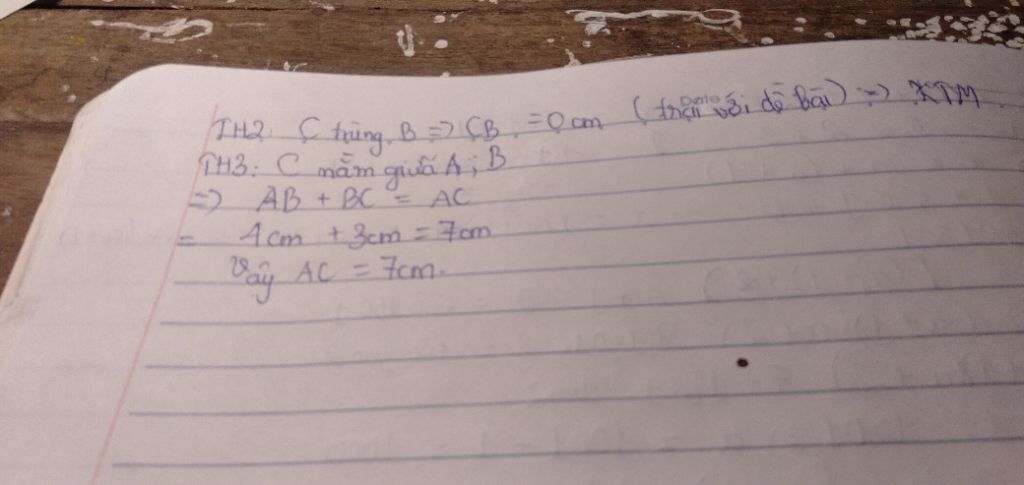 TH2: C trùng B => CB = 0 cm (trái với đề bài) => KTM
TH3: C nằm giữa A; B
=> AB + BC = AC
= 4cm + 3cm = 7cm
Vậy AC = 7cm.